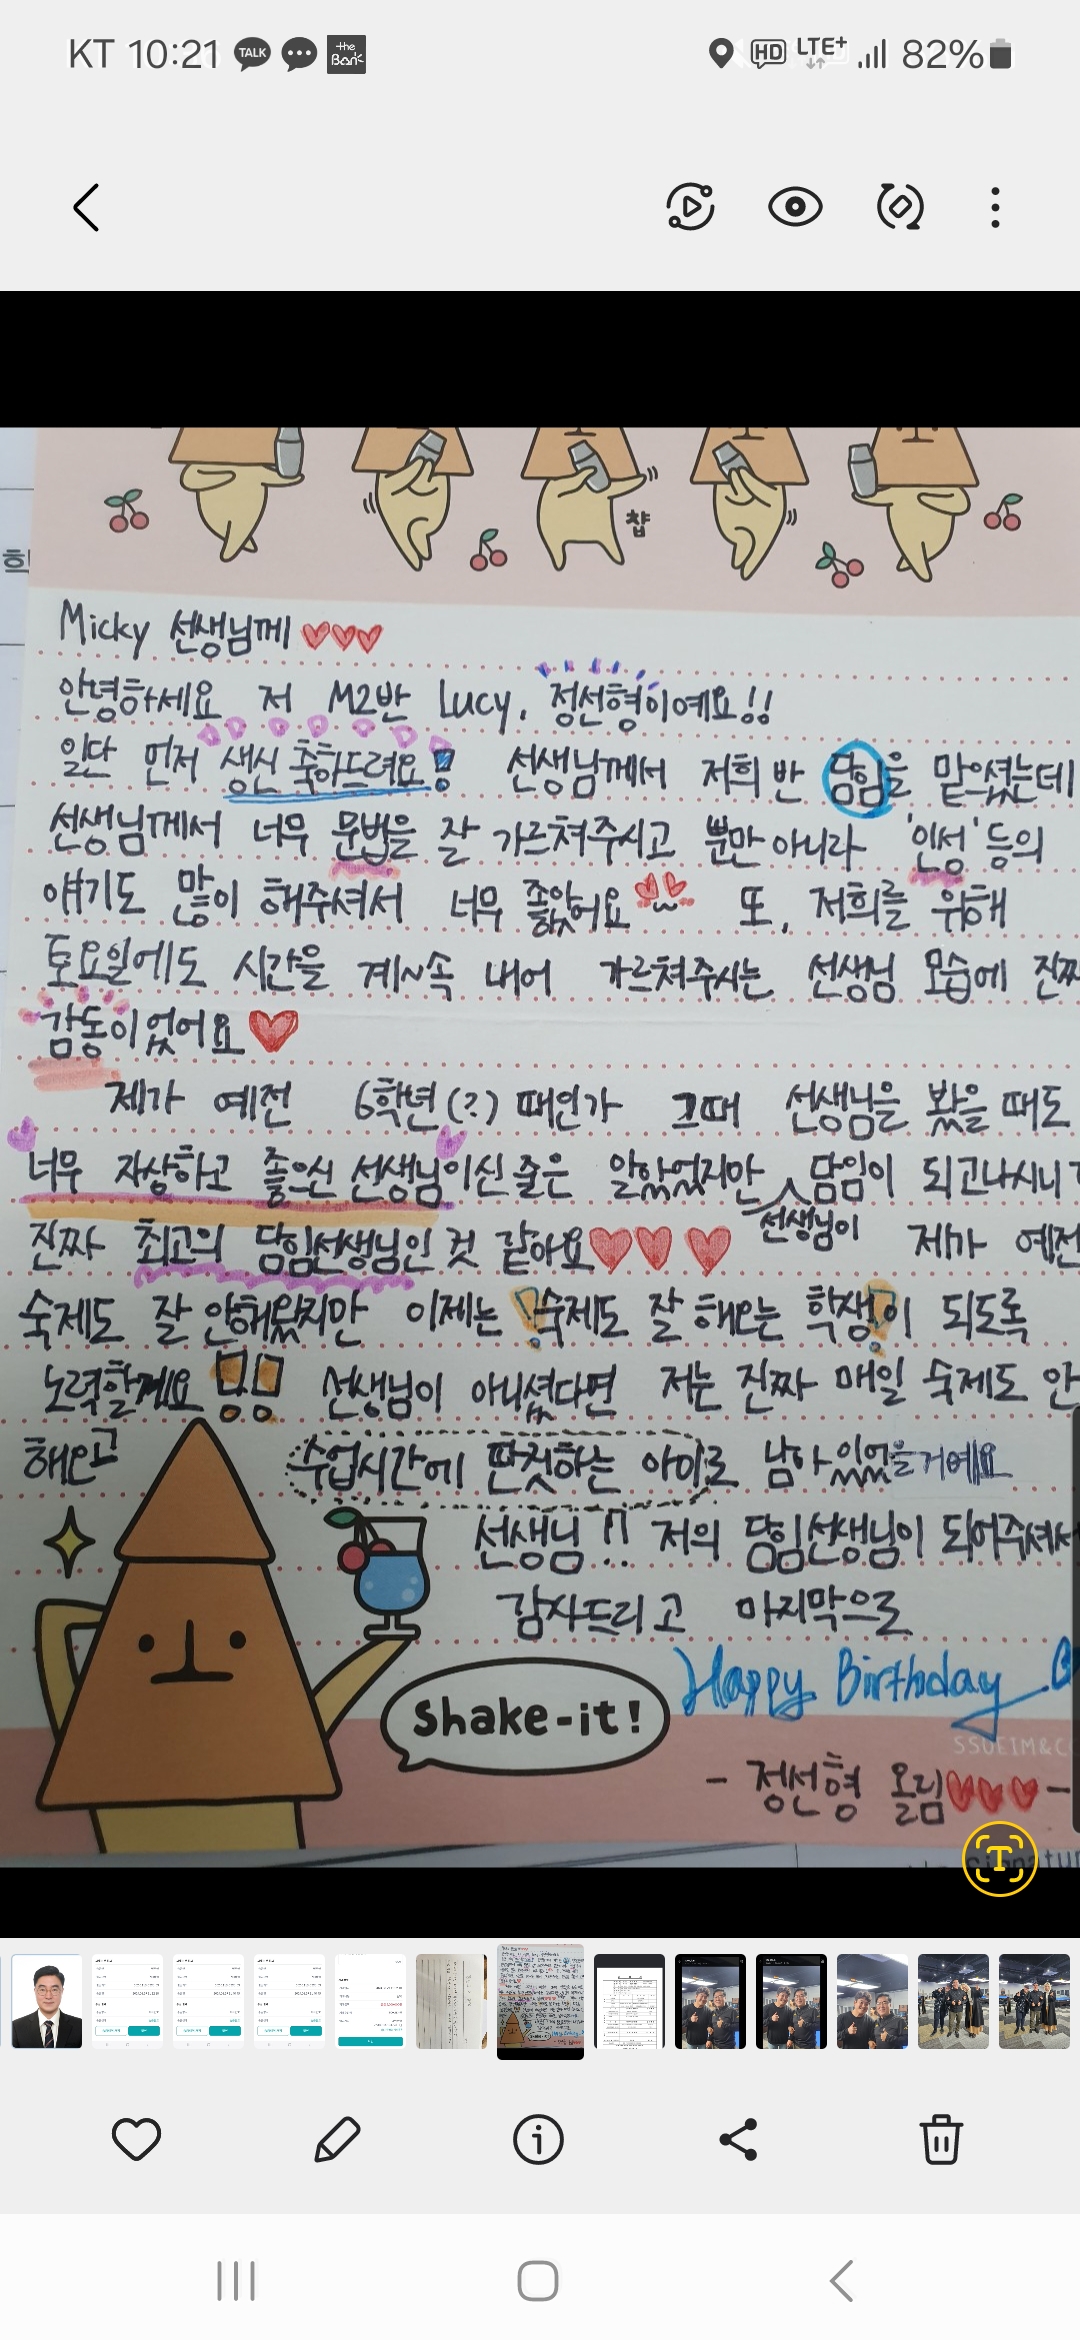 KT 10:21 TALK the Bank HD LTE+ 82%
챱
Micky 선생님께 ♥♥♥
안녕하세요 저 M2반 Lucy, 정선형이예요!!
일단 먼저 생신 축하드려요! 선생님께서 저희 반 담임을 맡으셨는데
선생님께서 너무 문법을 잘 가르쳐주시고 뿐만 아니라 '인성' 등의
얘기도 많이 해주셔서 너무 좋았어요 또, 저희를 위해
토요일에도 시간을 계~속 내어 가르쳐주시는 선생님 모습에 진짜
감동이었어요 ♥
제가 예전 6학년(?) 때인가 그때 선생님을 봤을 때도
너무 자상하고 좋으신 선생님이신 줄은 알았었지만 담임이 되고나시니
선생님이
진짜 최고의 담임선생님인 것 같아요 ♥♥♥ 제가 예전
숙제도 잘 안해왔지만 이제는 숙제도 잘 해오는 학생이 되도록
노력할게요 !! 선생님이 아니셨다면 저는 진짜 매일 숙제도 안
해오고 수업시간에 딴짓하는 아이로 남아있었을거예요
선생님!! 저의 담임선생님이 되어주셔서
감사드리고 마지막으로
Happy Birthday
Shake-it!
SSUEIM&C
- 정선형 올림 ♥♥♥ -
T